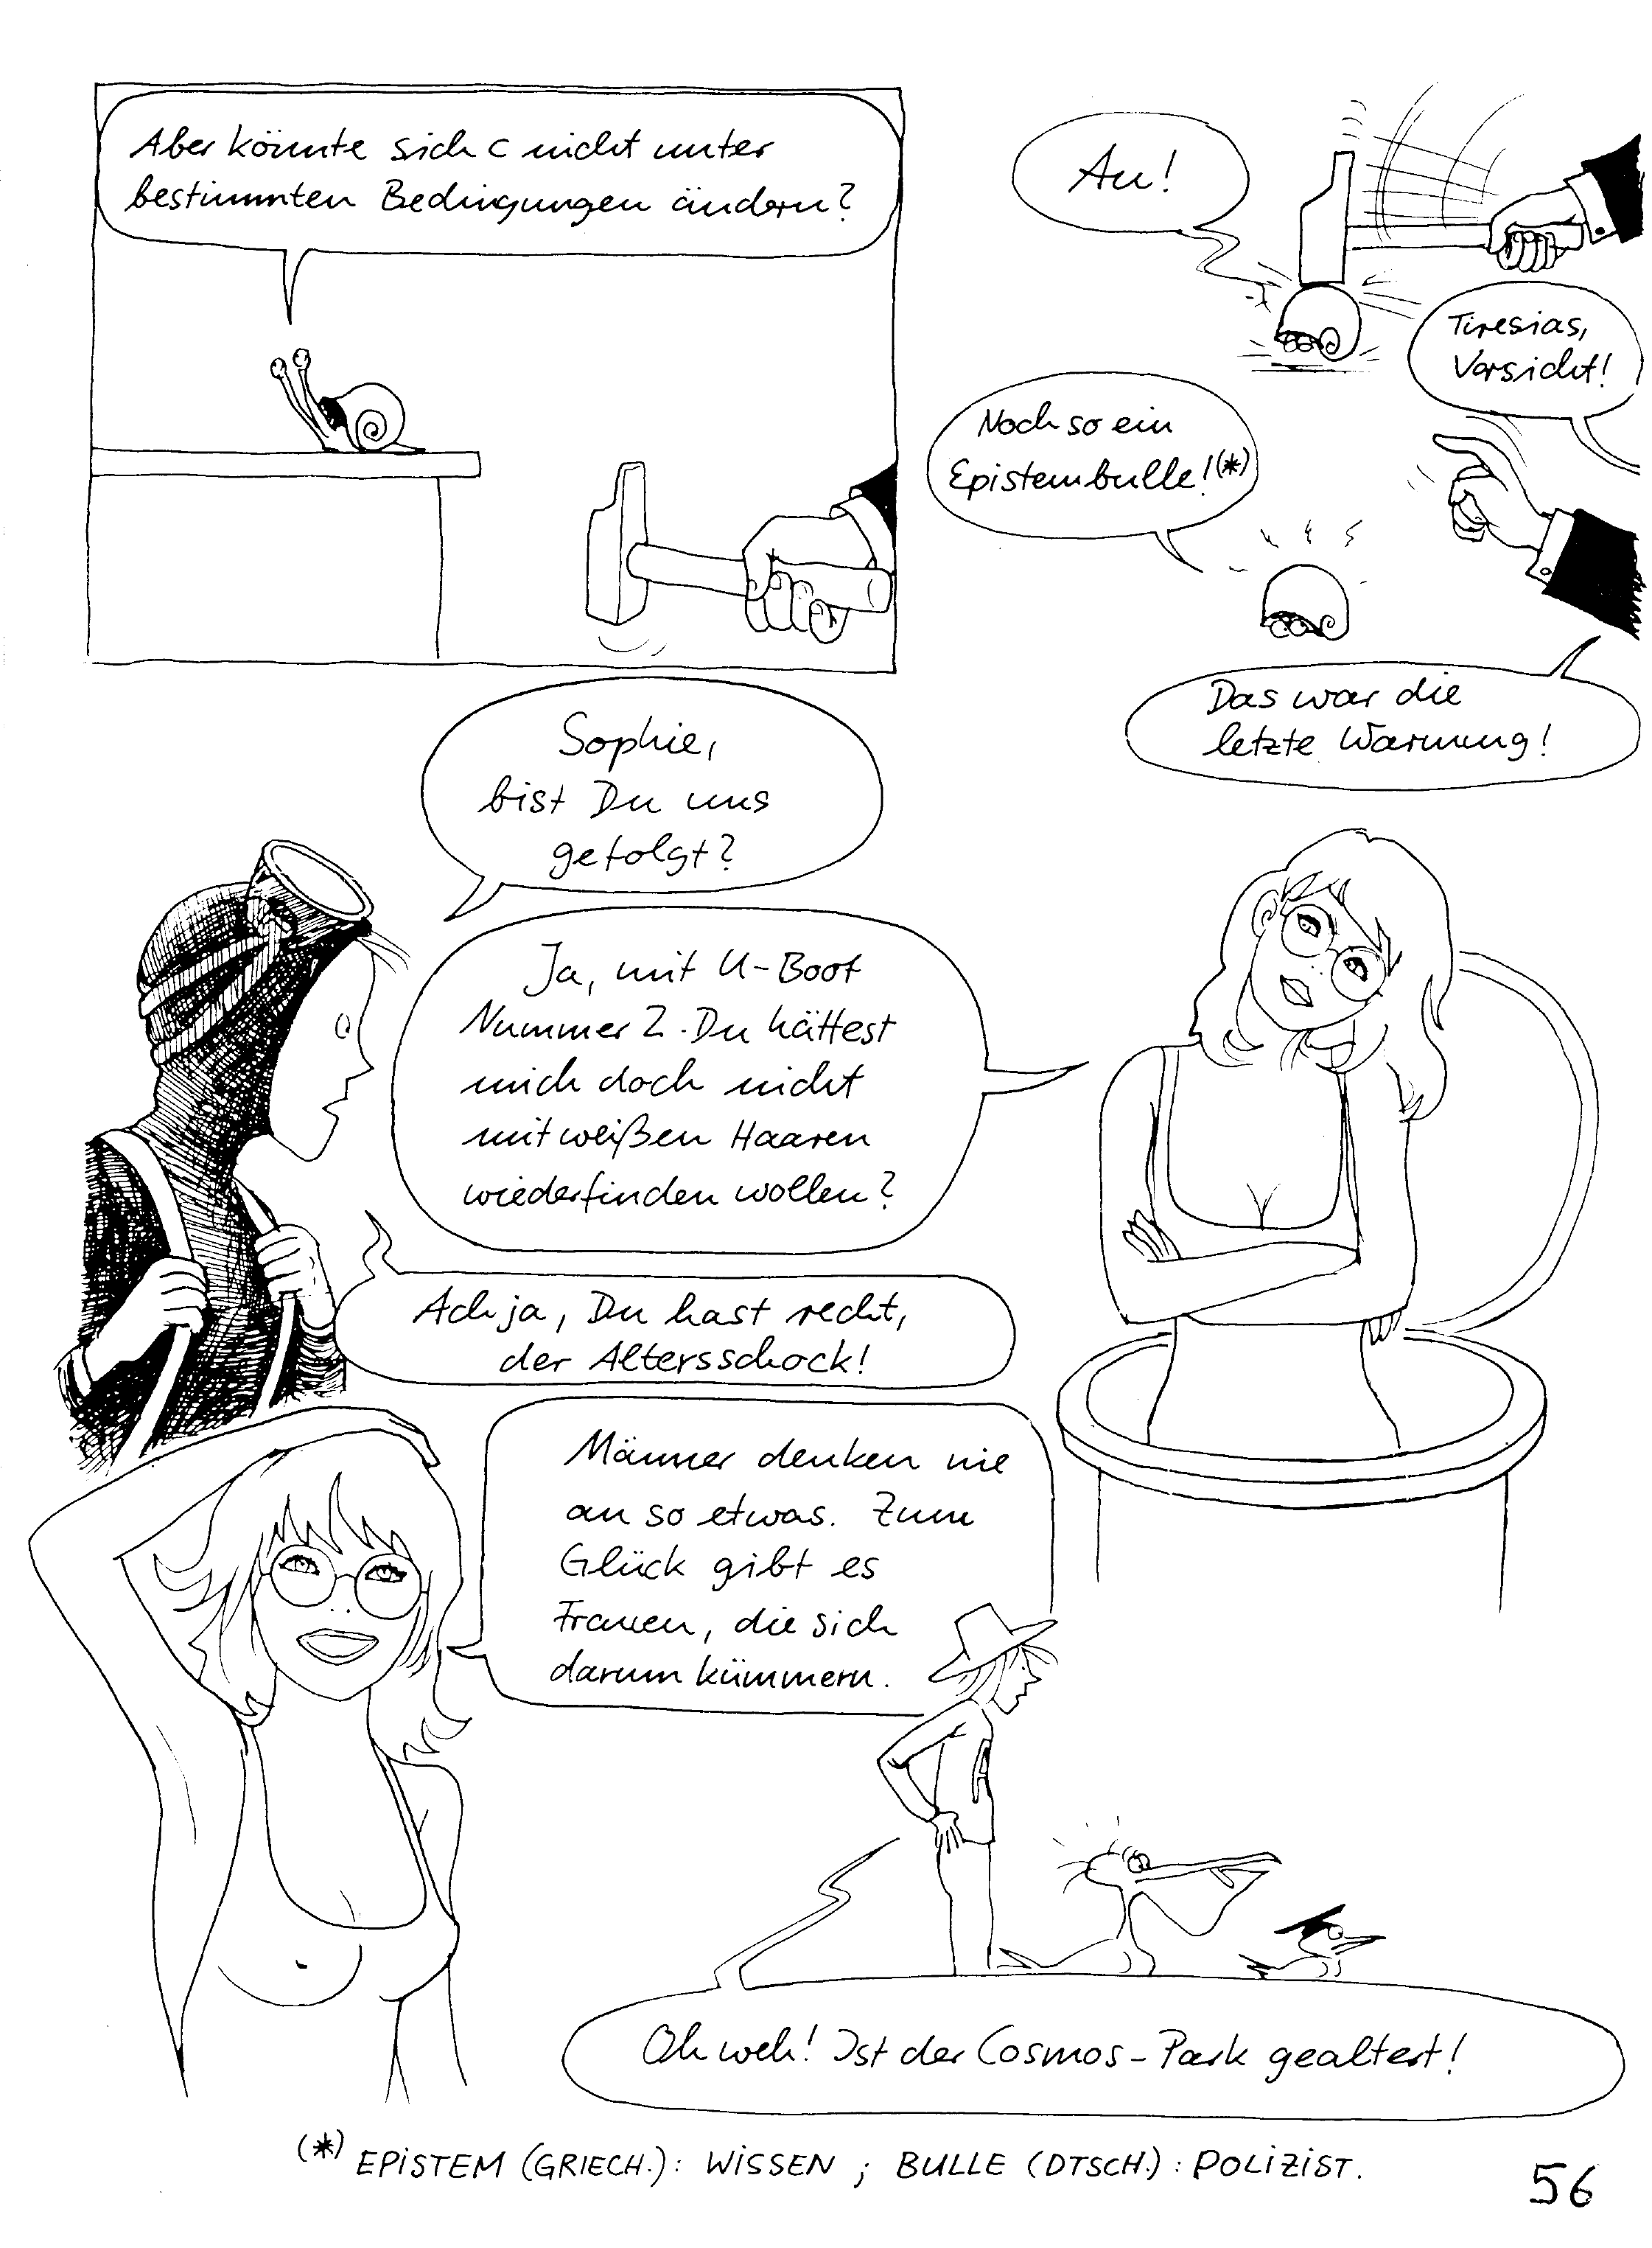 Aber könnte sich c nicht unter
bestimmten Bedingungen ändern?
Au!
Tiresias,
Vorsicht!
Noch so ein
Epistembulle!(*)
Das war die
letzte Warnung!
Sophie,
bist Du uns
gefolgt?
Ja, mit U-Boot
Nummer 2. Du hättest
mich doch nicht
mit weißen Haaren
wiederfinden wollen?
Ach ja, Du hast recht,
der Altersschock!
Männer denken nie
an so etwas. Zum
Glück gibt es
Frauen, die sich
darum kümmern.
A
Oh weh! Ist der Cosmos-Park gealtert!
(*) EPISTEM (GRIECH.): WISSEN ; BULLE (DTSCH.) : POLIZIST.
56